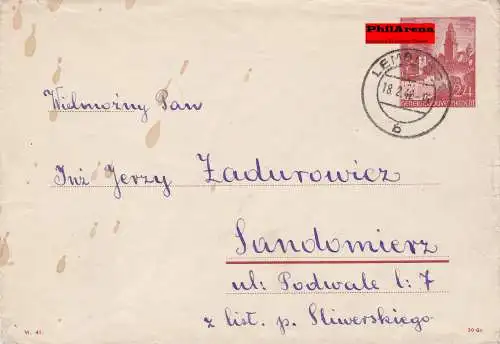 PhilArena
LEMBERG
18.2.
b
24
GENERALGOUVERNEMENT
Wielmożny Pan
Inż Jerzy Zadurowicz
Sandomierz
ul: Podwale l: 7
z list. p. Śliwerskiego
VI. 41.
30 Gr.